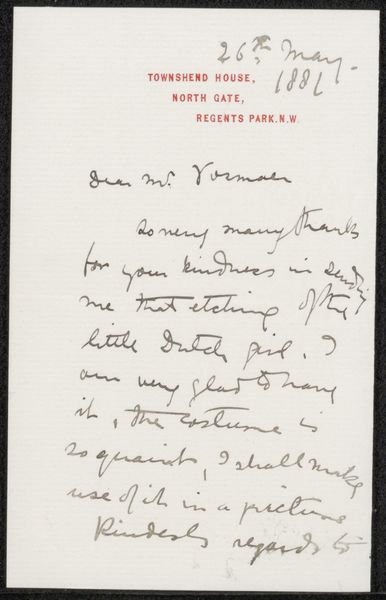 26th May.
1881
TOWNSHEND HOUSE,
NORTH GATE,
REGENTS PARK.N.W.
Dear Mr. Vosmaer
so very many thanks
for your kindness in sending
me that etching of the
little Dutch girl. I
am very glad to have
it, the costume is
so quaint, I shall make
use of it in a picture
Kindest regards to